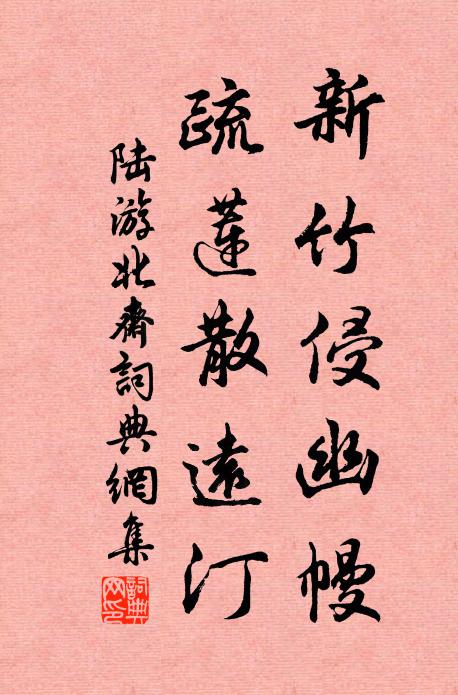 新竹侵幽幔
疏蓮散遠汀
陆游北齋詞典網集
詞典网印